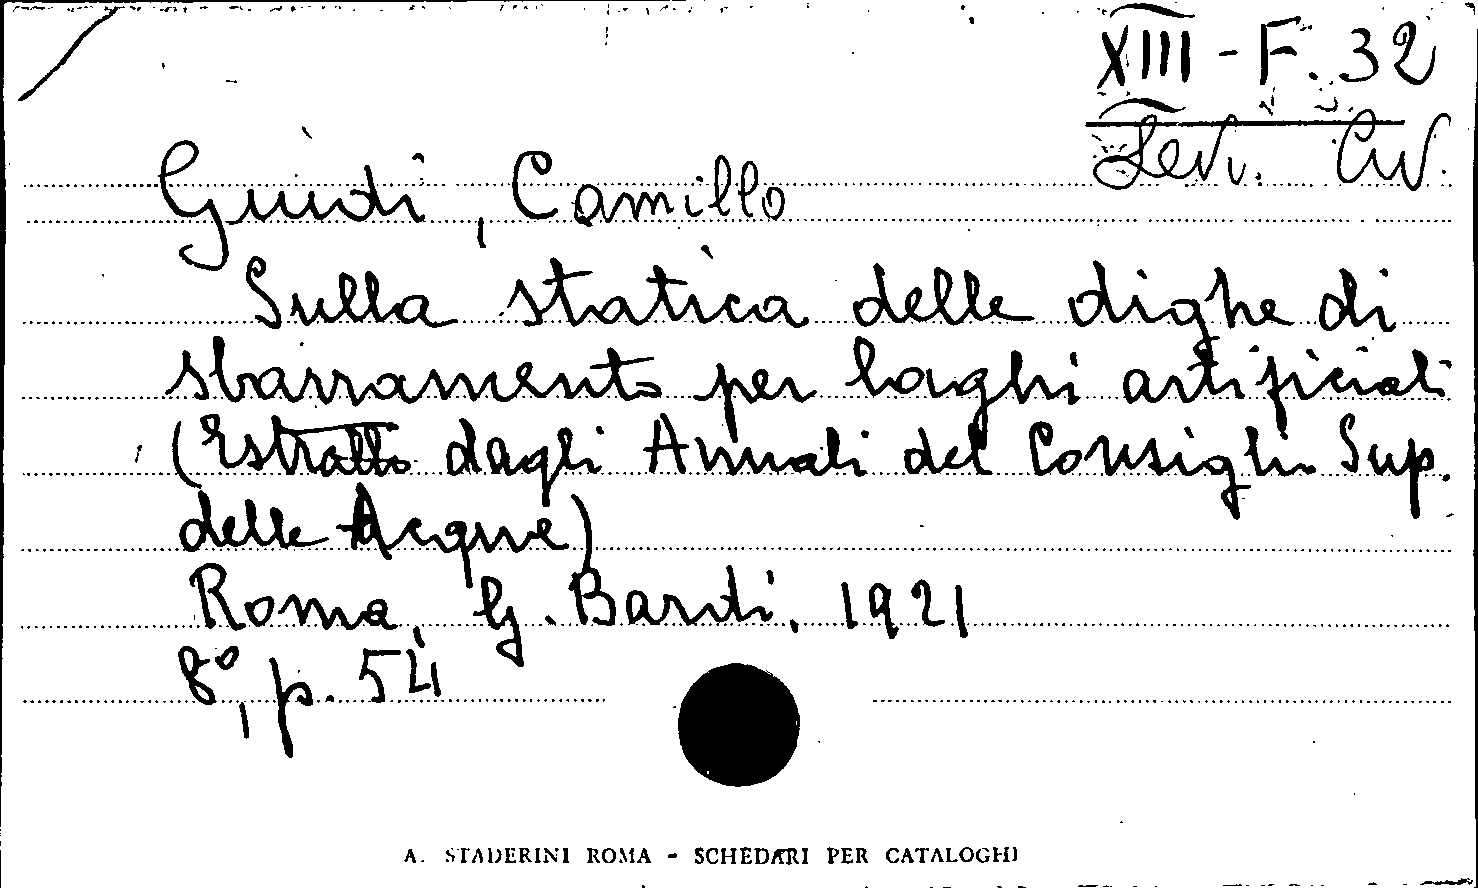 XIII - F. 32
Lev. Civ.
Guidi, Camillo
Sulla statica delle dighe di
sbarramento per laghi artificiali
(Estratto dagli Annali del Consiglio Sup.
delle Acque)
Roma, G. Bardi, 1921
8°, p. 54
A. STADERINI ROMA - SCHEDARI PER CATALOGHI